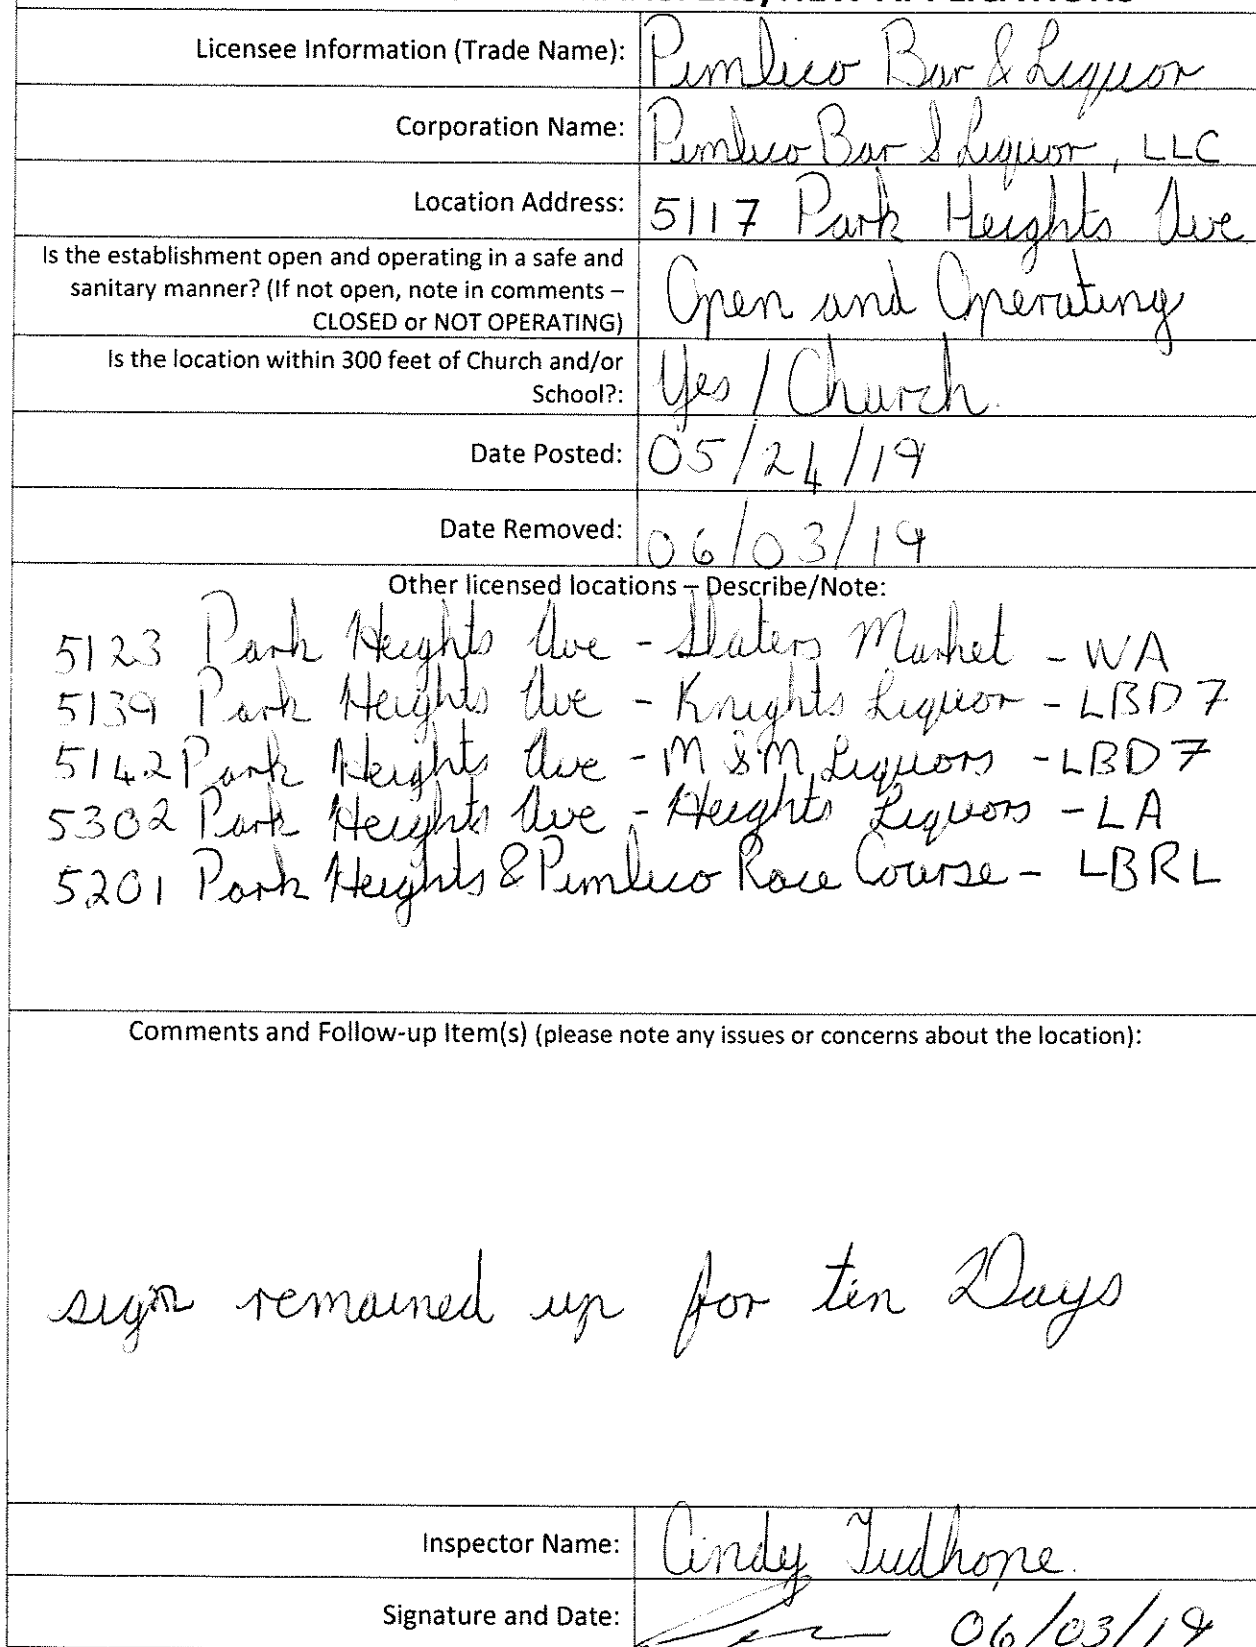 Licensee Information (Trade Name): Pimlico Bar & Liquor
Corporation Name: Pimlico Bar & Liquor, LLC
Location Address: 5117 Park Heights Ave
Is the establishment open and operating in a safe and
sanitary manner? (If not open, note in comments –
CLOSED or NOT OPERATING)
Open and Operating
Is the location within 300 feet of Church and/or
School?:
Yes / Church.
Date Posted: 05/24/19
Date Removed: 06/03/19
Other licensed locations – Describe/Note:
5123 Park Heights Ave - Slaters Market - WA
5139 Park Heights Ave - Knights Liquor - LBD7
5142 Park Heights Ave - M&M Liquors - LBD7
5302 Park Heights Ave - Heights Liquors - LA
5201 Park Heights & Pimlico Race Course - LBRL
Comments and Follow-up Item(s) (please note any issues or concerns about the location):
sign remained up for ten Days
Inspector Name: Cindy Tudhope.
Signature and Date: 06/03/19